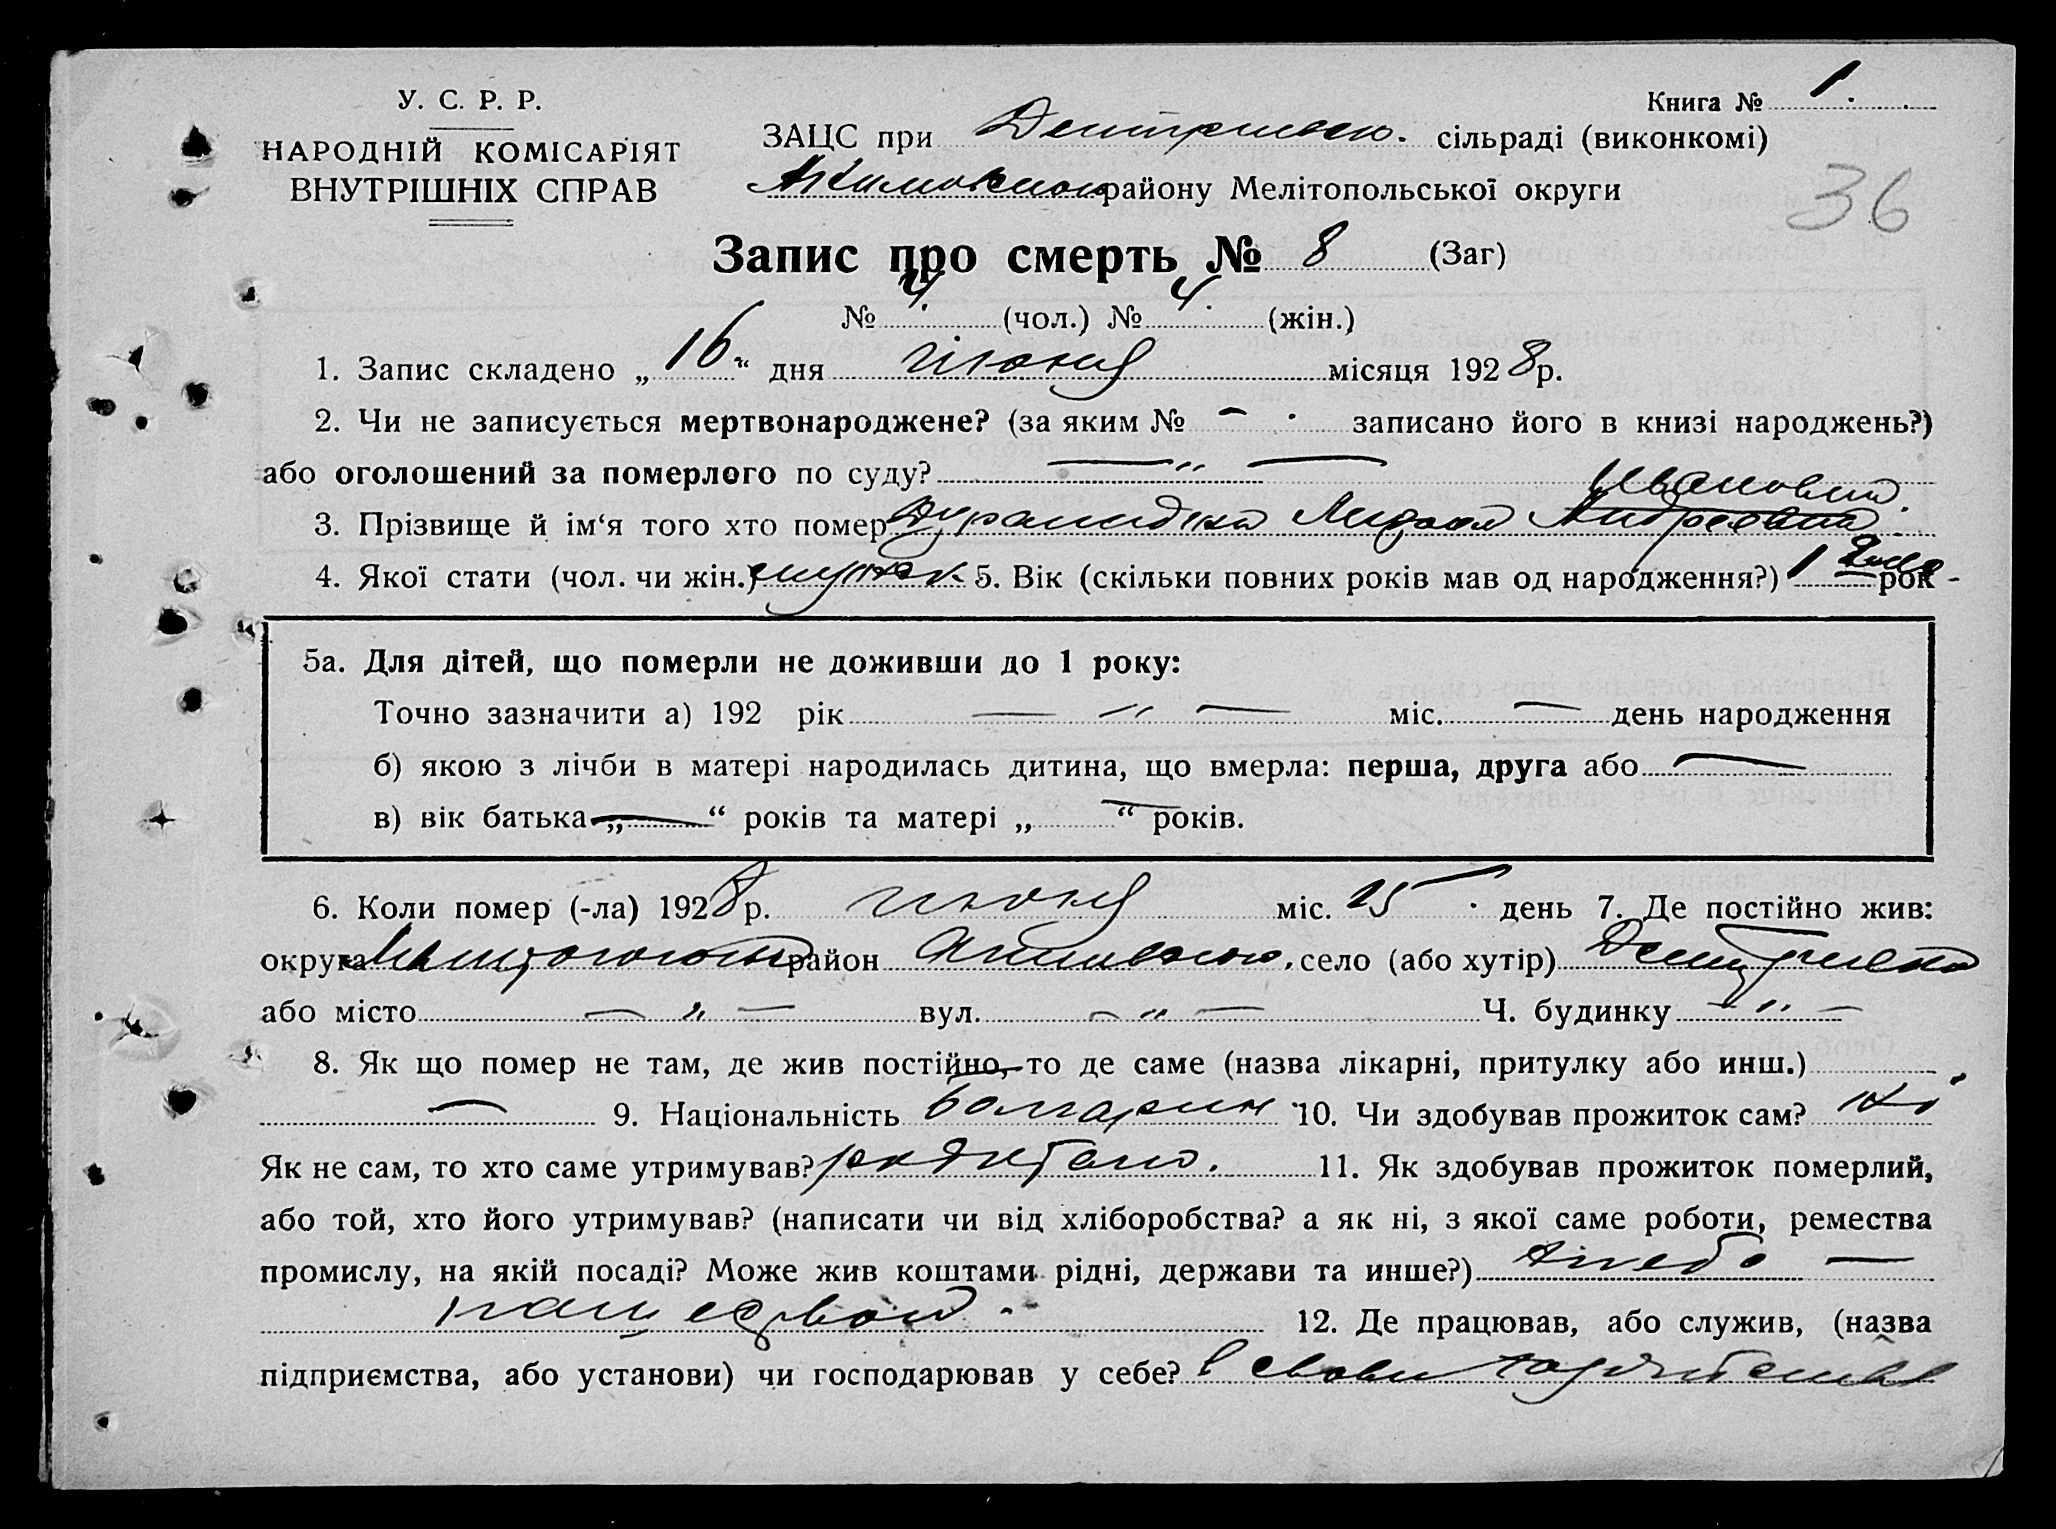 У. С. Р. Р.
НАРОДНІЙ КОМІСАРІЯТ
ВНУТРІШНІХ СПРАВ
Книга № 1.
ЗАЦС при сільраді (виконкомі)
району Мелітопольської округи
36
Запис про смерть № 8 (Заг)
№ 4. (чол.) № 4. (жін.)
1. Запис складено „16“ дня июня місяця 1928р.
2. Чи не записується мертвонароджене? (за яким № - записано його в книзі народжень?)
або оголошений за померлого по суду? — " —
3. Прізвище й ім‘я того хто помер
4. Якої стати (чол. чи жін.) 5. Вік (скільки повних років мав од народження?) 1 рок
5а. Для дітей, що померли не доживши до 1 року:
Точно зазначити а) 192 рік — " — міс. — день народження
б) якою з лічби в матері народилась дитина, що вмерла: перша, друга або —
в) вік батька „—“ років та матері „—“ років.
6. Коли помер (-ла) 1928р. июня міс. 15 день 7. Де постійно жив:
округа район село (або хутір)
або місто — " — вул. — " — Ч. будинку — " —
8. Як що помер не там, де жив постійно, то де саме (назва лікарні, притулку або инш.)
— 9. Національність болгарин 10. Чи здобував прожиток сам?
Як не сам, то хто саме утримував? 11. Як здобував прожиток померлий,
або той, хто його утримував? (написати чи від хліборобства? а як ні, з якої саме роботи, ремества
промислу, на якій посаді? Може жив коштами рідні, держави та инше?) хлебо —
пашеством. 12. Де працював, або служив, (назва
підприємства, або установи) чи господарював у себе? в